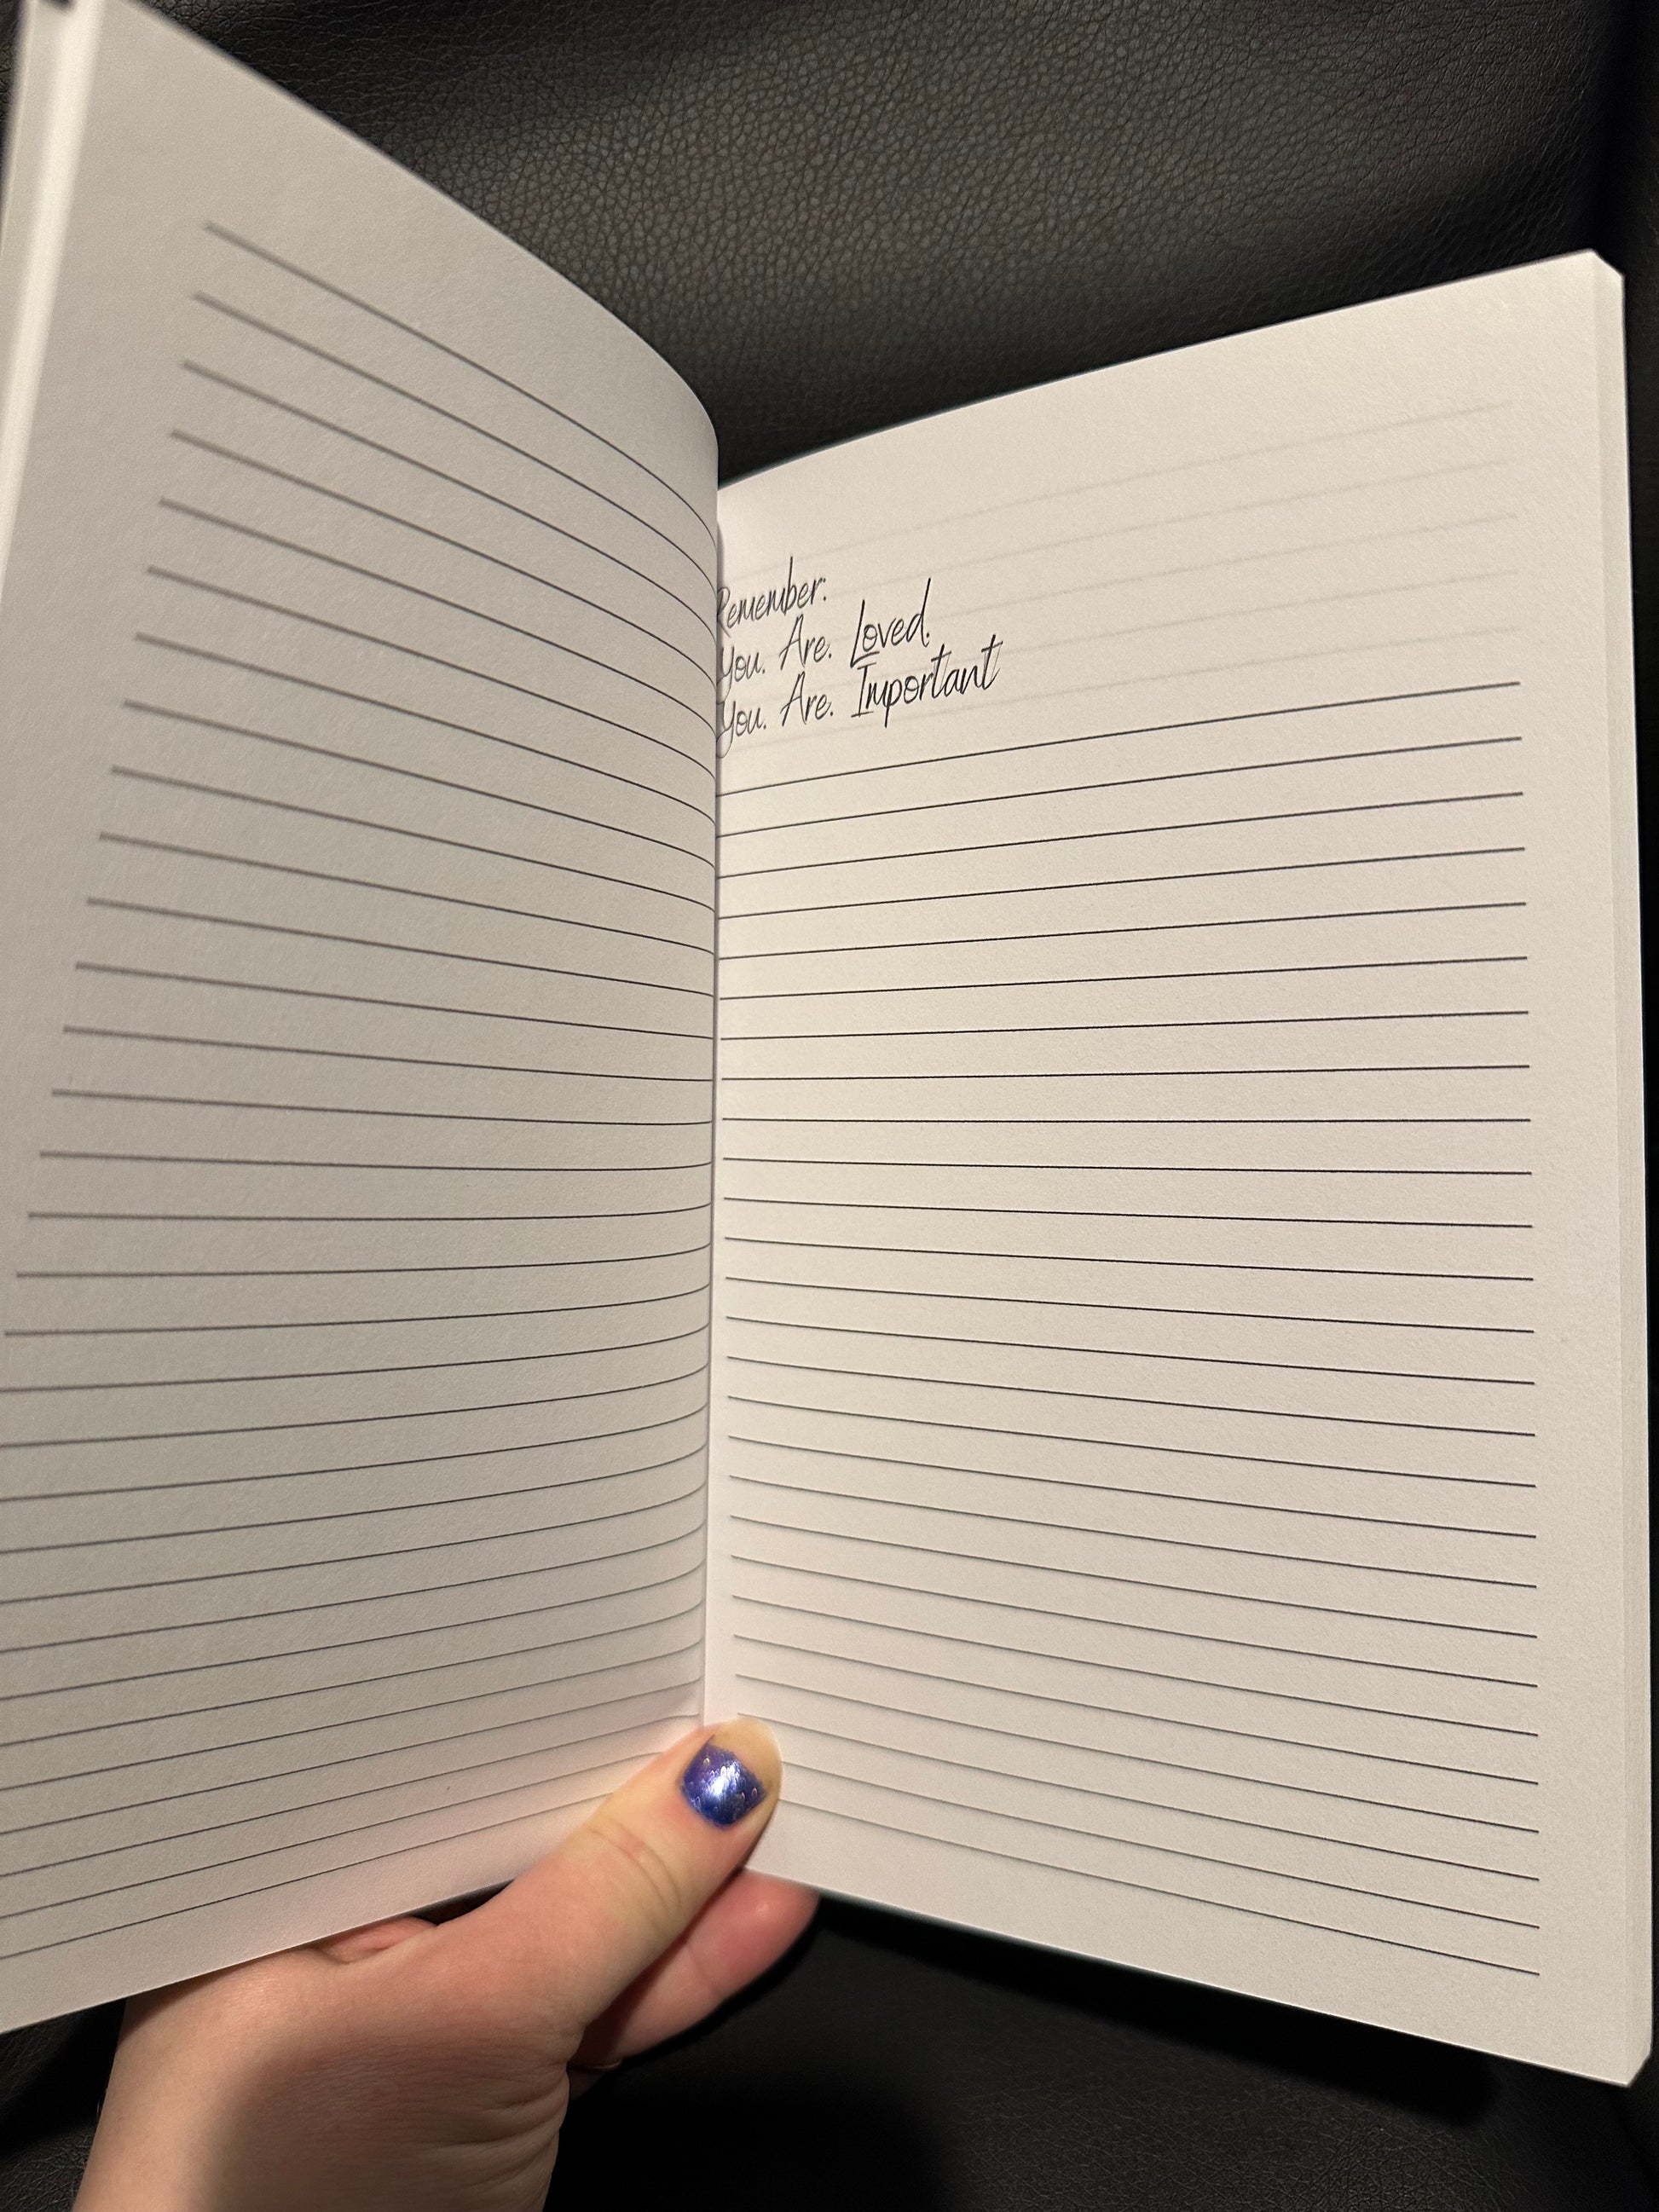 Remember:
You. Are. Loved.
You. Are. Important